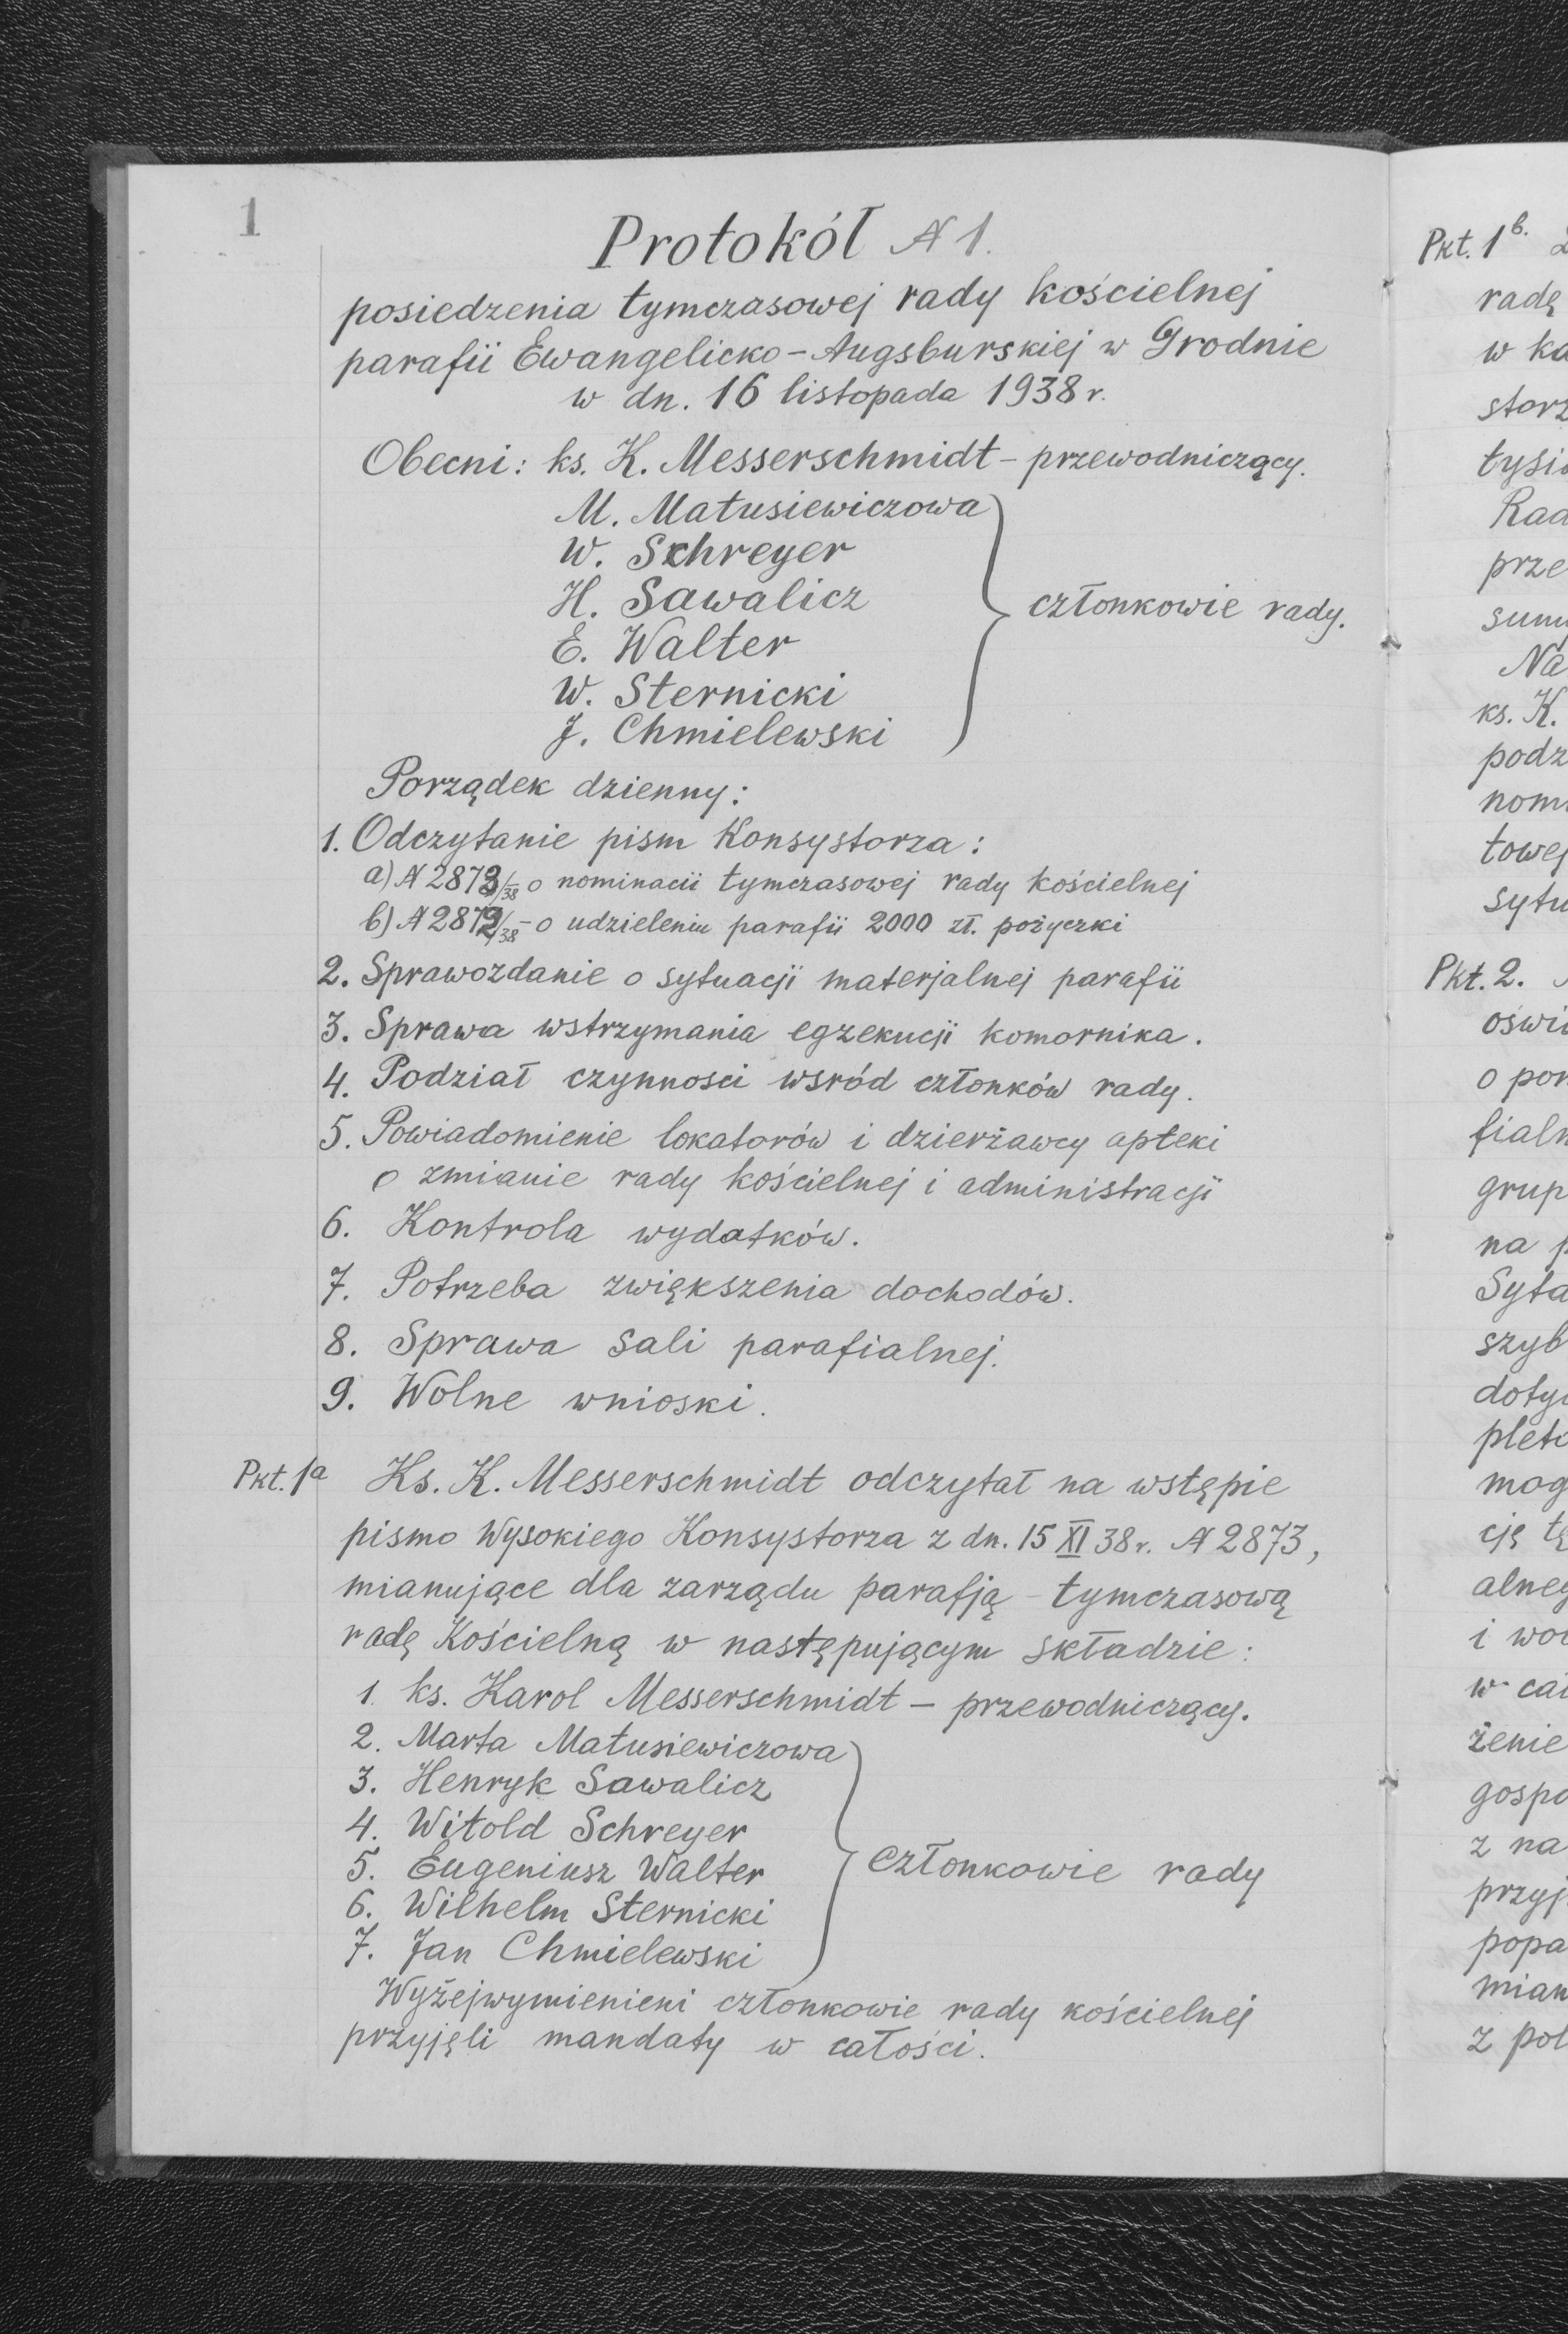 1
Protokół № 1.
posiedzenia tymczasowej rady kościelnej
parafii Ewangelicko-Augsburskiej w Grodnie
w dn. 16 listopada 1938 r.
Obecni: ks. K. Messerschmidt - przewodniczący.
M. Matusiewiczowa
W. Schreyer
H. Sawalicz
członkowie rady.
E. Walter
W. Sternicki
J. Chmielewski
Porządek dzienny:
1. Odczytanie pism Konsystorza:
a) № 2873/38 o nominacii tymczasowej rady kościelnej
b) № 2872/38 - o udzieleniu parafii 2000 zł. pożyczki
2. Sprawozdanie o sytuacji materjalnej parafii
3. Sprawa wstrzymania egzekucji komornika.
4. Podział czynnosci wsród członków rady.
5. Powiadomienie lokatorów i dzierżawcy apteki
o zmianie rady kościelnej i administracji
6. Kontrola wydatków.
7. Potrzeba zwiększenia dochodów.
8. Sprawa sali parafialnej.
9. Wolne wnioski.
Pkt. 1a Ks. K. Messerschmidt odczytał na wstępie
pismo Wysokiego Konsystorza z dn. 15 XI 38 r. № 2873,
mianujące dla zarządu parafją - tymczasową
radę Kościelną w następującym składzie:
1. ks. Karol Messerschmidt - przewodniczący.
2. Marta Matusiewiczowa
3. Henryk Sawalicz
4. Witold Schreyer
5. Eugeniusz Walter
członkowie rady
6. Wilhelm Sternicki
7. Jan Chmielewski
Wyżejwymienieni członkowie rady kościelnej
przyjęli mandaty w całości.
Pkt. 1b.
radę
w ka
storz
tysią
Rad
prze
sum
Na
ks. K.
podz
nom
towej
sytu
Pkt. 2.
oświ
o pom
fialn
grup
na p
Syta
szyb
doty
plet
mog
cję tę
alneg
i wo
w cał
żenie
gospo
z na
przyj
popa
mian
z pol